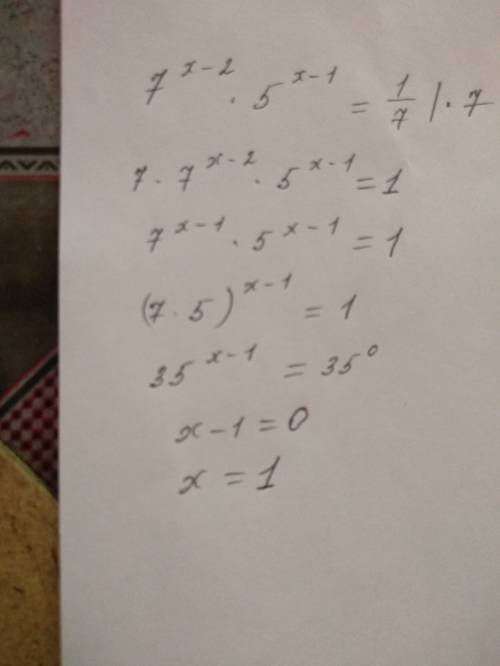 7^{x-2} · 5^{x-1} = \frac{1}{7} | · 7
7 · 7^{x-2} · 5^{x-1} = 1
7^{x-1} · 5^{x-1} = 1
(7 · 5)^{x-1} = 1
35^{x-1} = 35^0
x - 1 = 0
x = 1